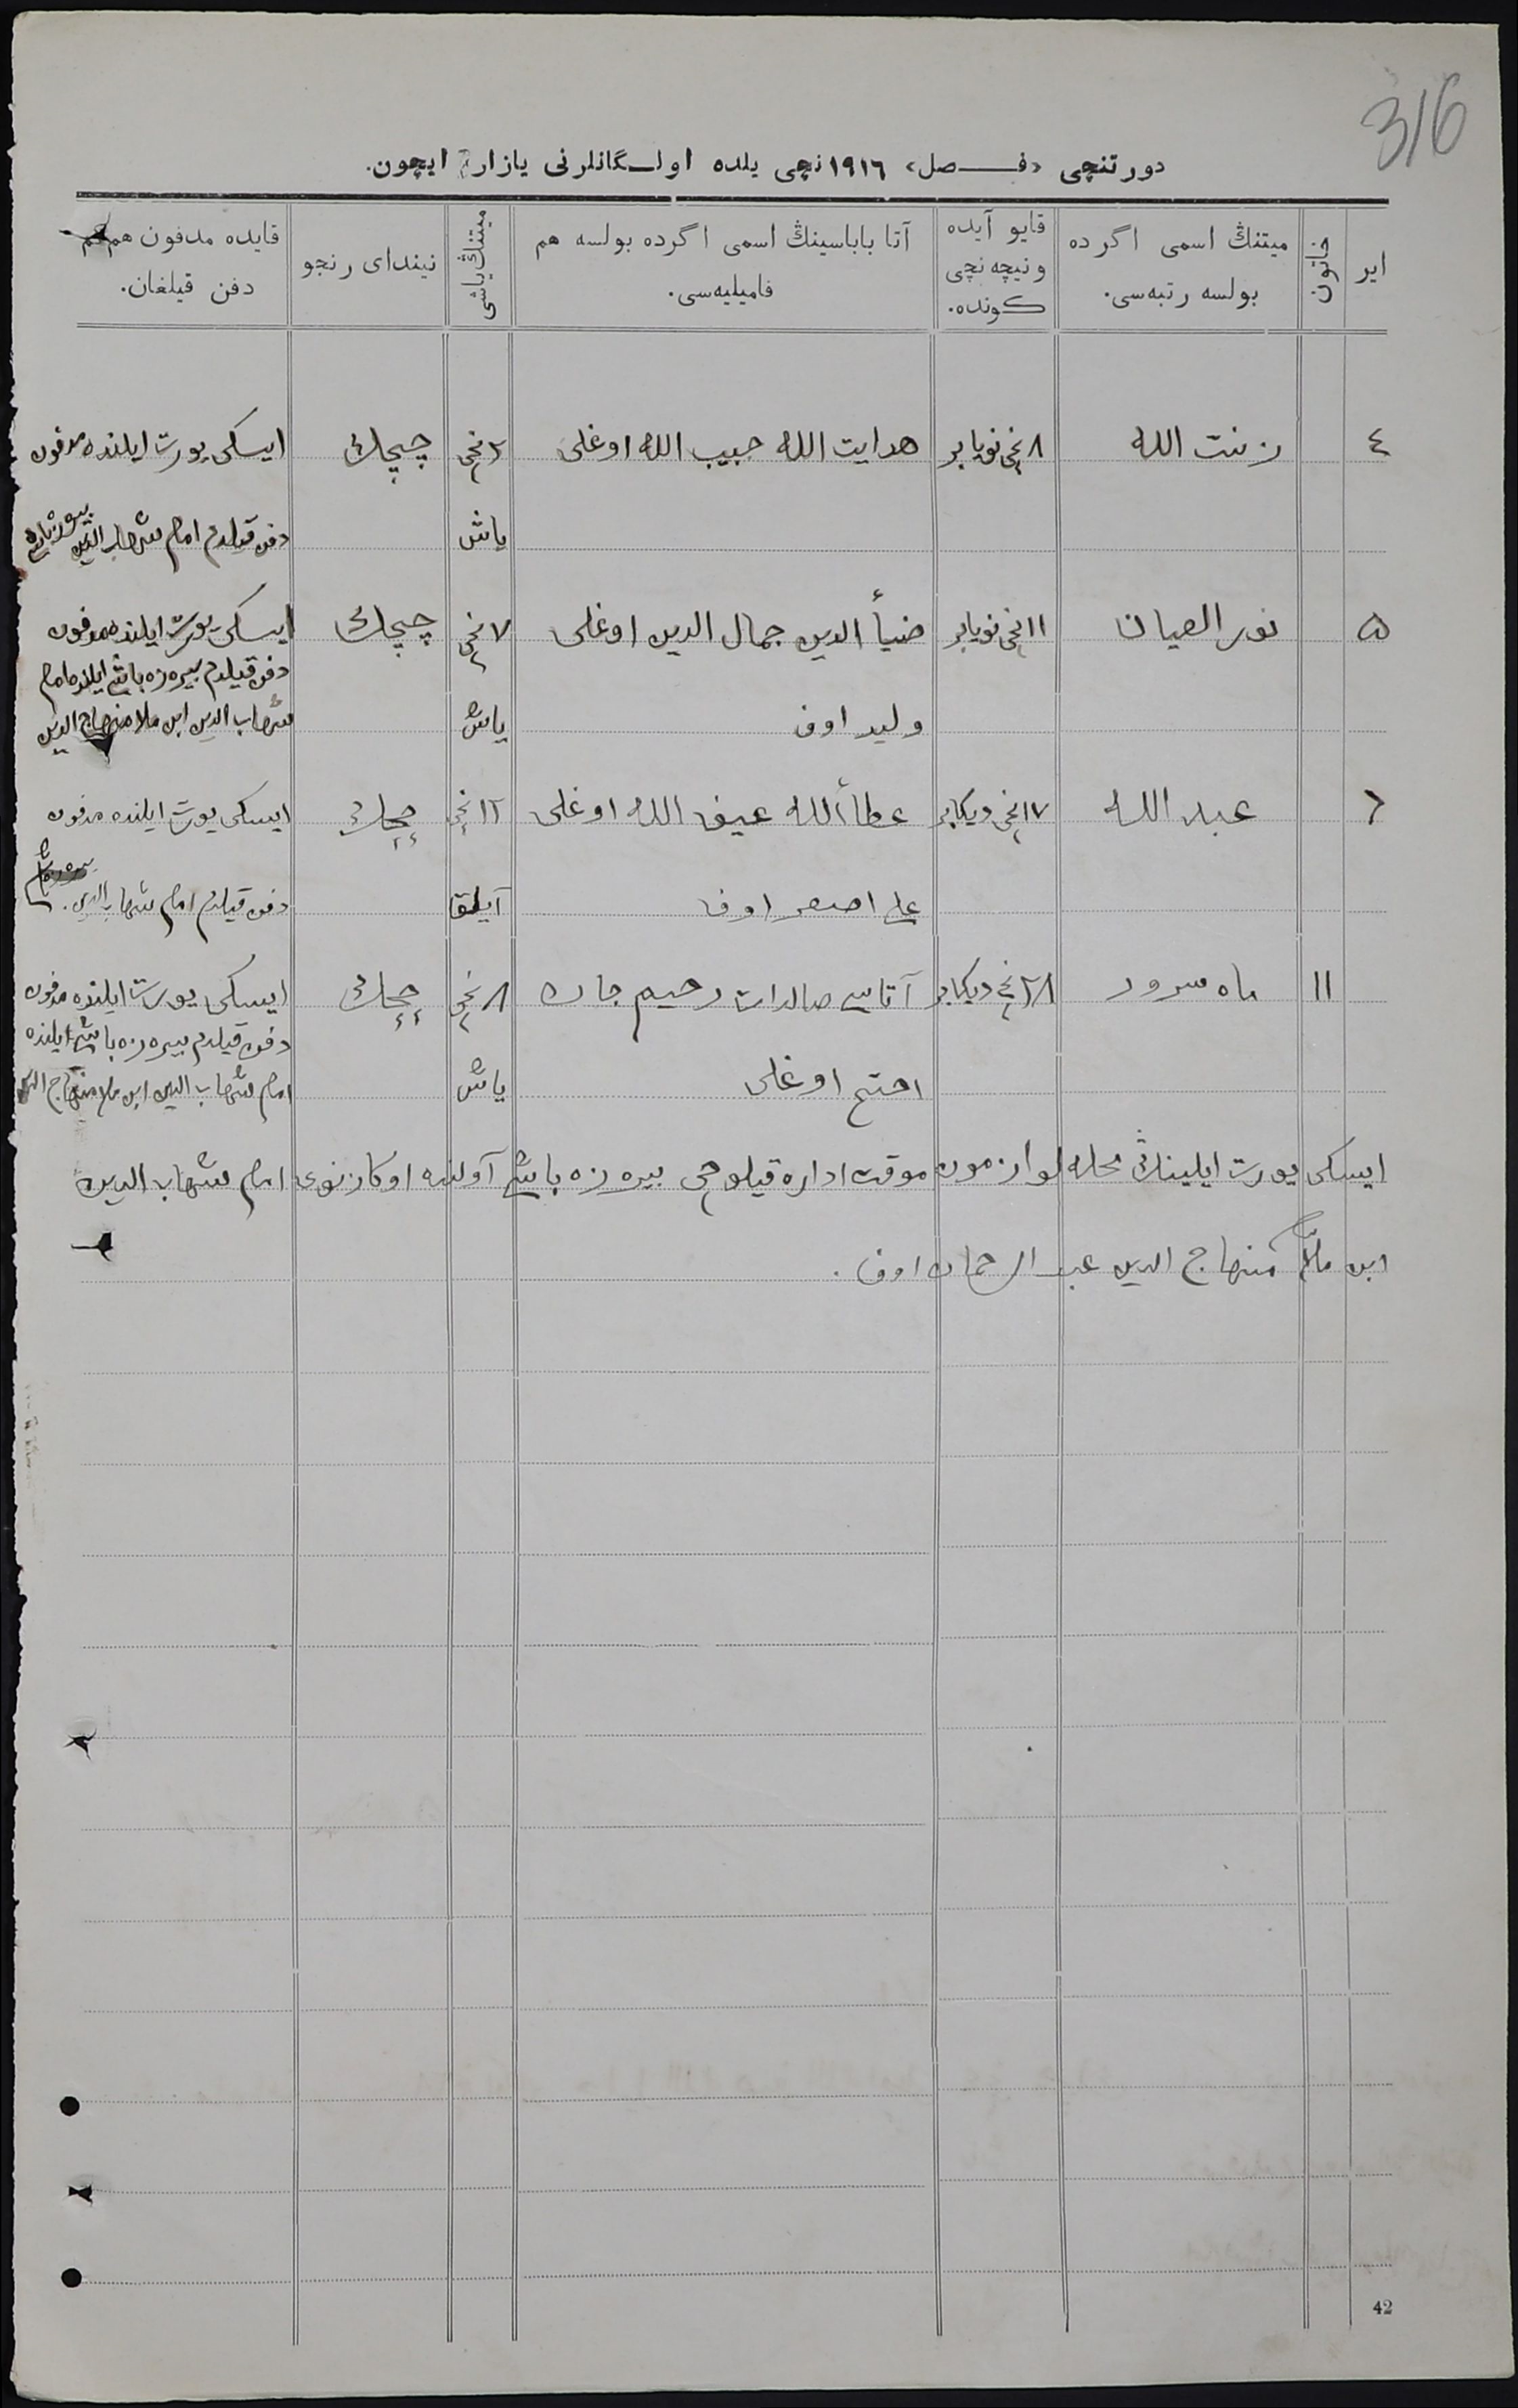 316
دورتنچی «فصل» ١٩١٦نچی یلده اولگانلرنی یازار ایچون.
ایر
خاتون
میتنڭ اسمی اگرده
بولسه رتبه‌سی.
قایو آیده
ونیچه نچی
کونده.
آتا باباسینڭ اسمی اگرده بولسه هم
فامیلیه‌سی.
میتنڭ یاشی
نیندای رنجو
قایده مدفون هم کم
دفن قیلغان.
٤ زینت الله ٨نچی نویابر هدایت الله حبیب الله اوغلی ٢نچی چیچاك ایسکی یورت ایلنده مدفون
یاش دفن قیلدم امام شهاب الدین
٥ نور العیان ١١نچی نویابر ضیأ الدین جمال الدین اوغلی ٧نچی چیچاك ایسکی یورت ایلنده مدفون
دفن قیلدم بیره‌زه باشی ایلنده امام
ولید اوف یاش شهاب الدین ابن ملا منهاج الدین
٦ عبد الله ١٧نچی دیکابر عطأالله عیف الله اوغلی ١٢نچی چچاك ایسکی یورت ایلنده مدفون
علی اصغر اوف آیلق دفن قیلدم امام شهاب الدین.
١١ ماه سرور ٢٨نچی دیکابر آتاسی صالدات رحیم جان ٨نچی چچاك ایسکی یورت ایلنده مدفون
دفن قیلدم بیره‌زه باشی ایلنده
اوغلی یاش امام شهاب الدین ابن ملا منهاج الدین
ایسکی یورت ایلینڭ محله لوازمون موقت اداره قیلوچی بیره‌زه باشی آولنده اوکازنوی امام شهاب الدین
ابن ملا منهاج الدین عبد الرحمان اوف.
42